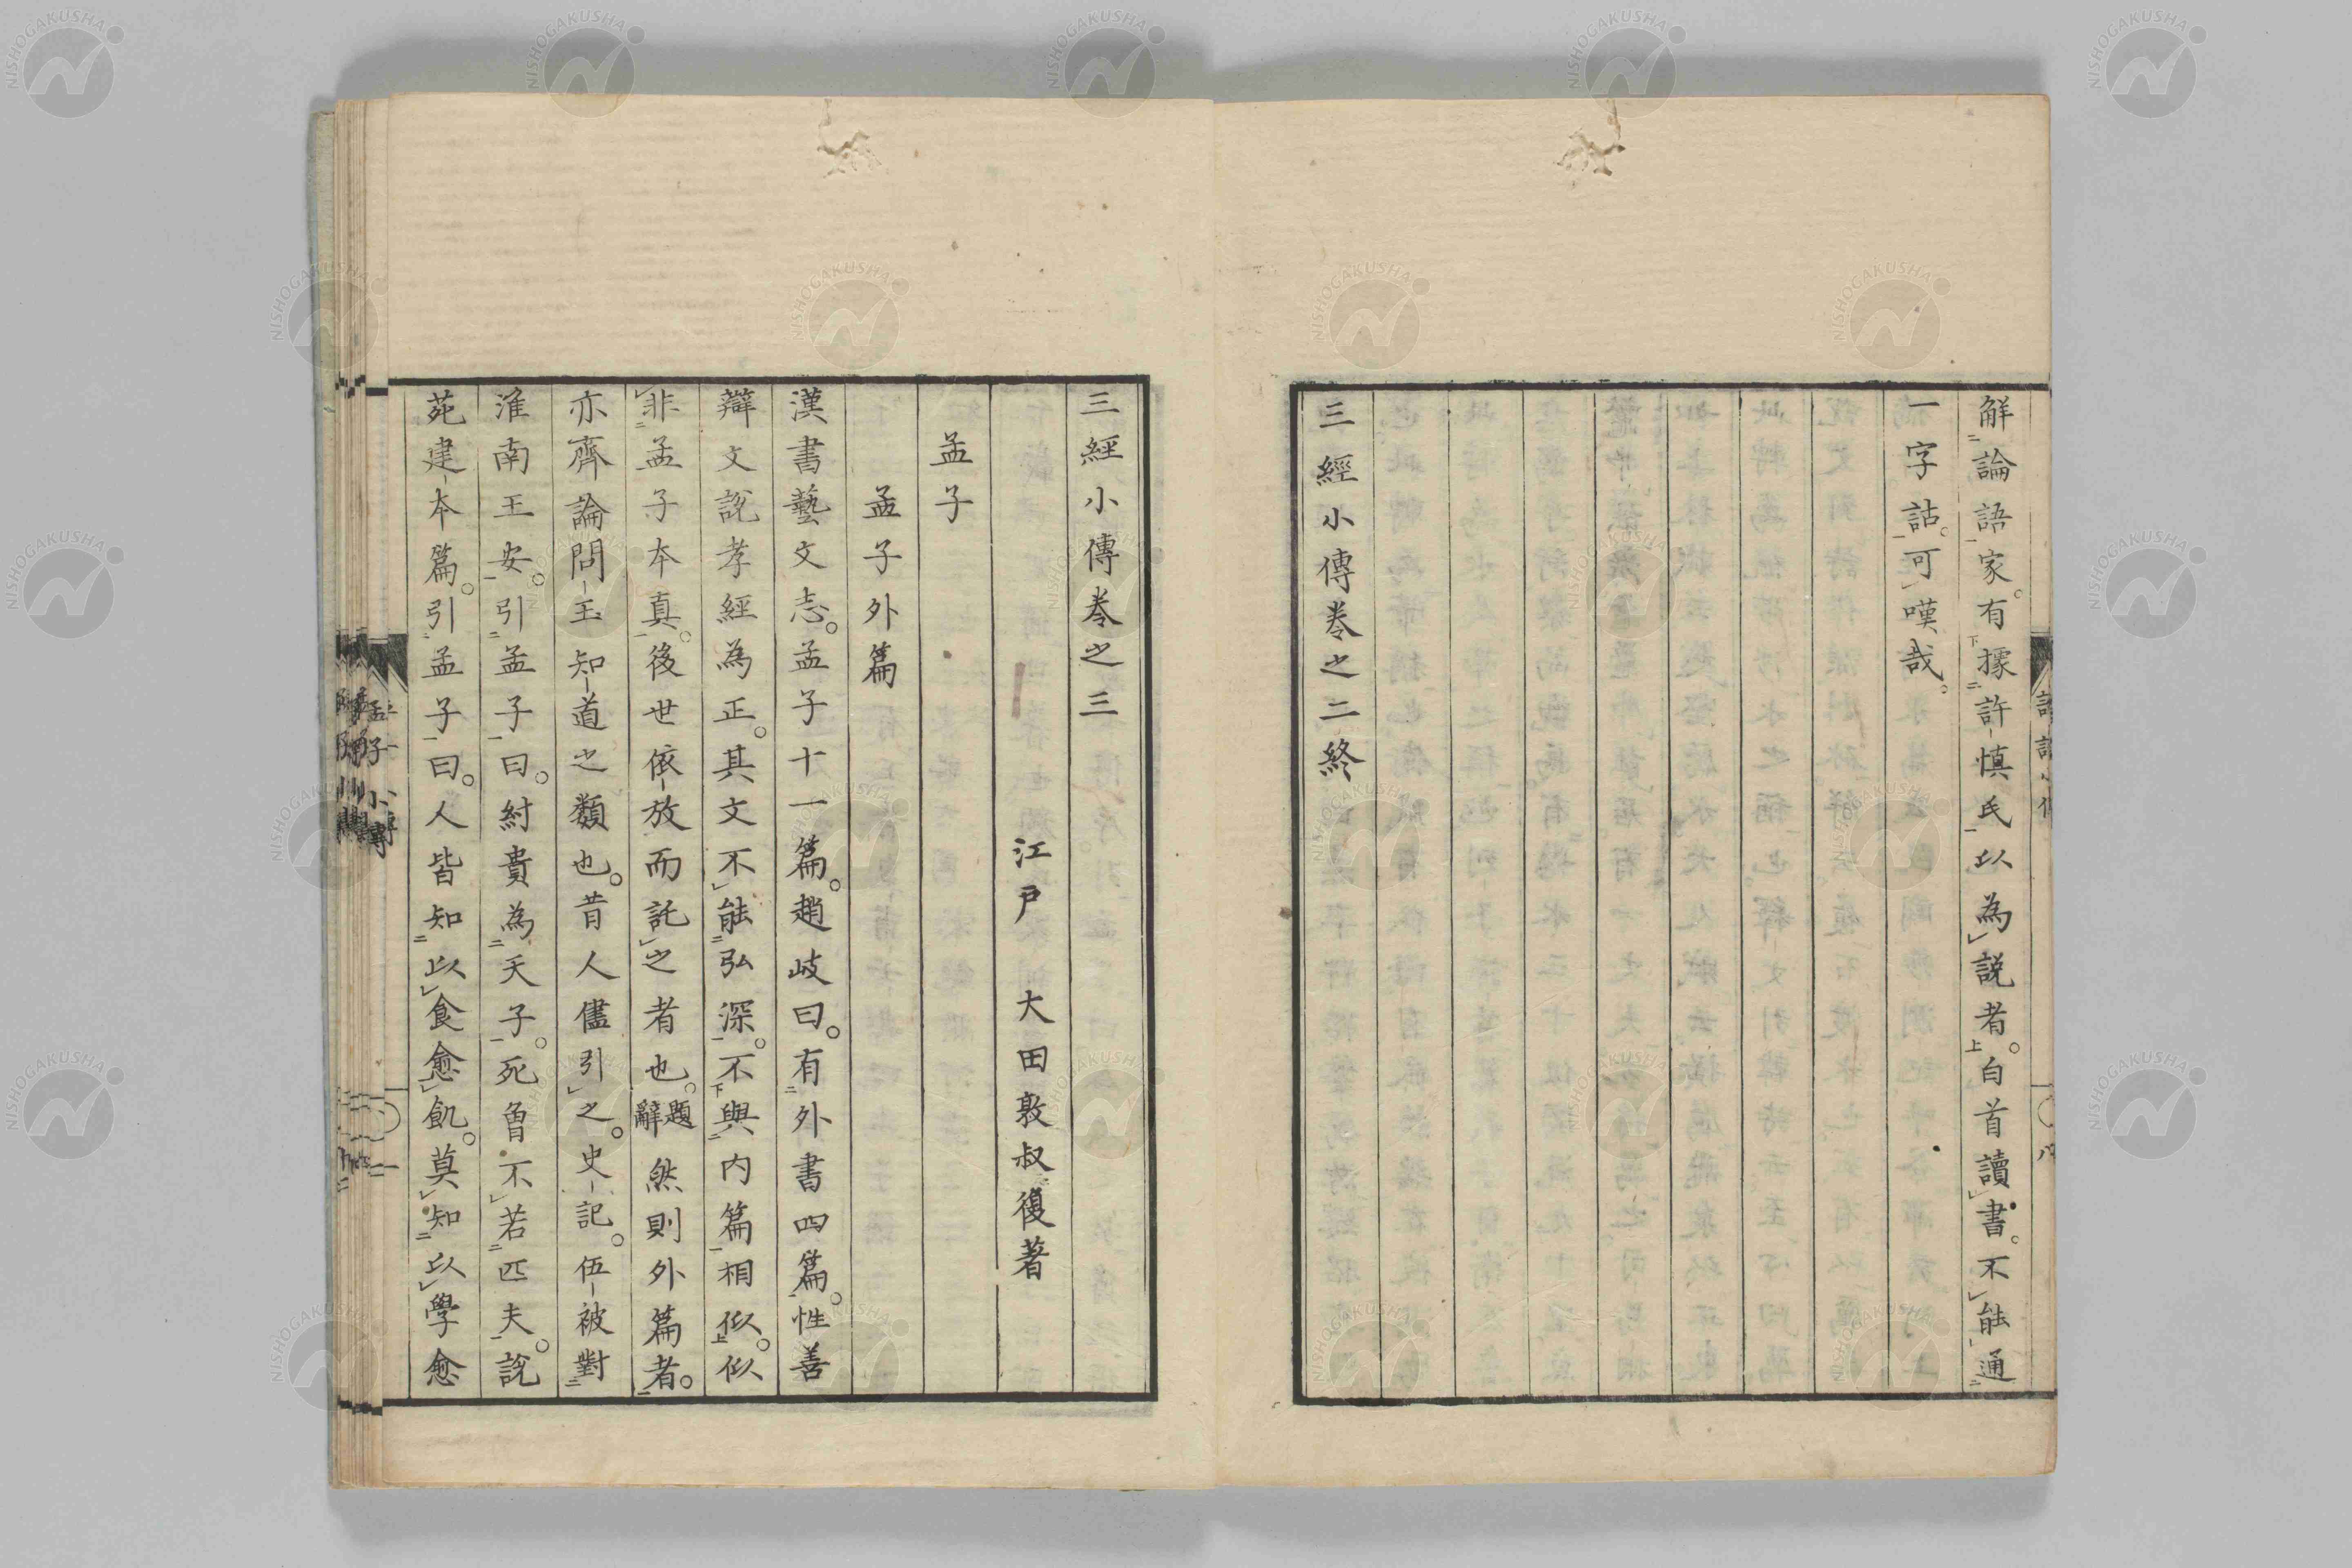 解論語家。有據許慎氏以為説者。白首讀書。不能通
一字詁。可嘆哉。
三經小傳卷之二終
三經小傳卷之三
江戸 大田敦叔復著
孟子
孟子外篇
漢書藝文志。孟子十一篇。趙岐曰。有外書四篇。性善
辯文說孝經為正。其文不能弘深。不與内篇相似。似
非孟子本真。後世依放而託之者也。題辭然則外篇者。
亦齊論問王知道之類也。昔人儘引之。史記。伍被對
淮南王安。引孟子曰。紂貴為天子。死曾不若匹夫。說
苑建本篇。引孟子曰。人皆知以食愈飢。莫知以學愈
孟子小傳
NISHOGAKUSHA